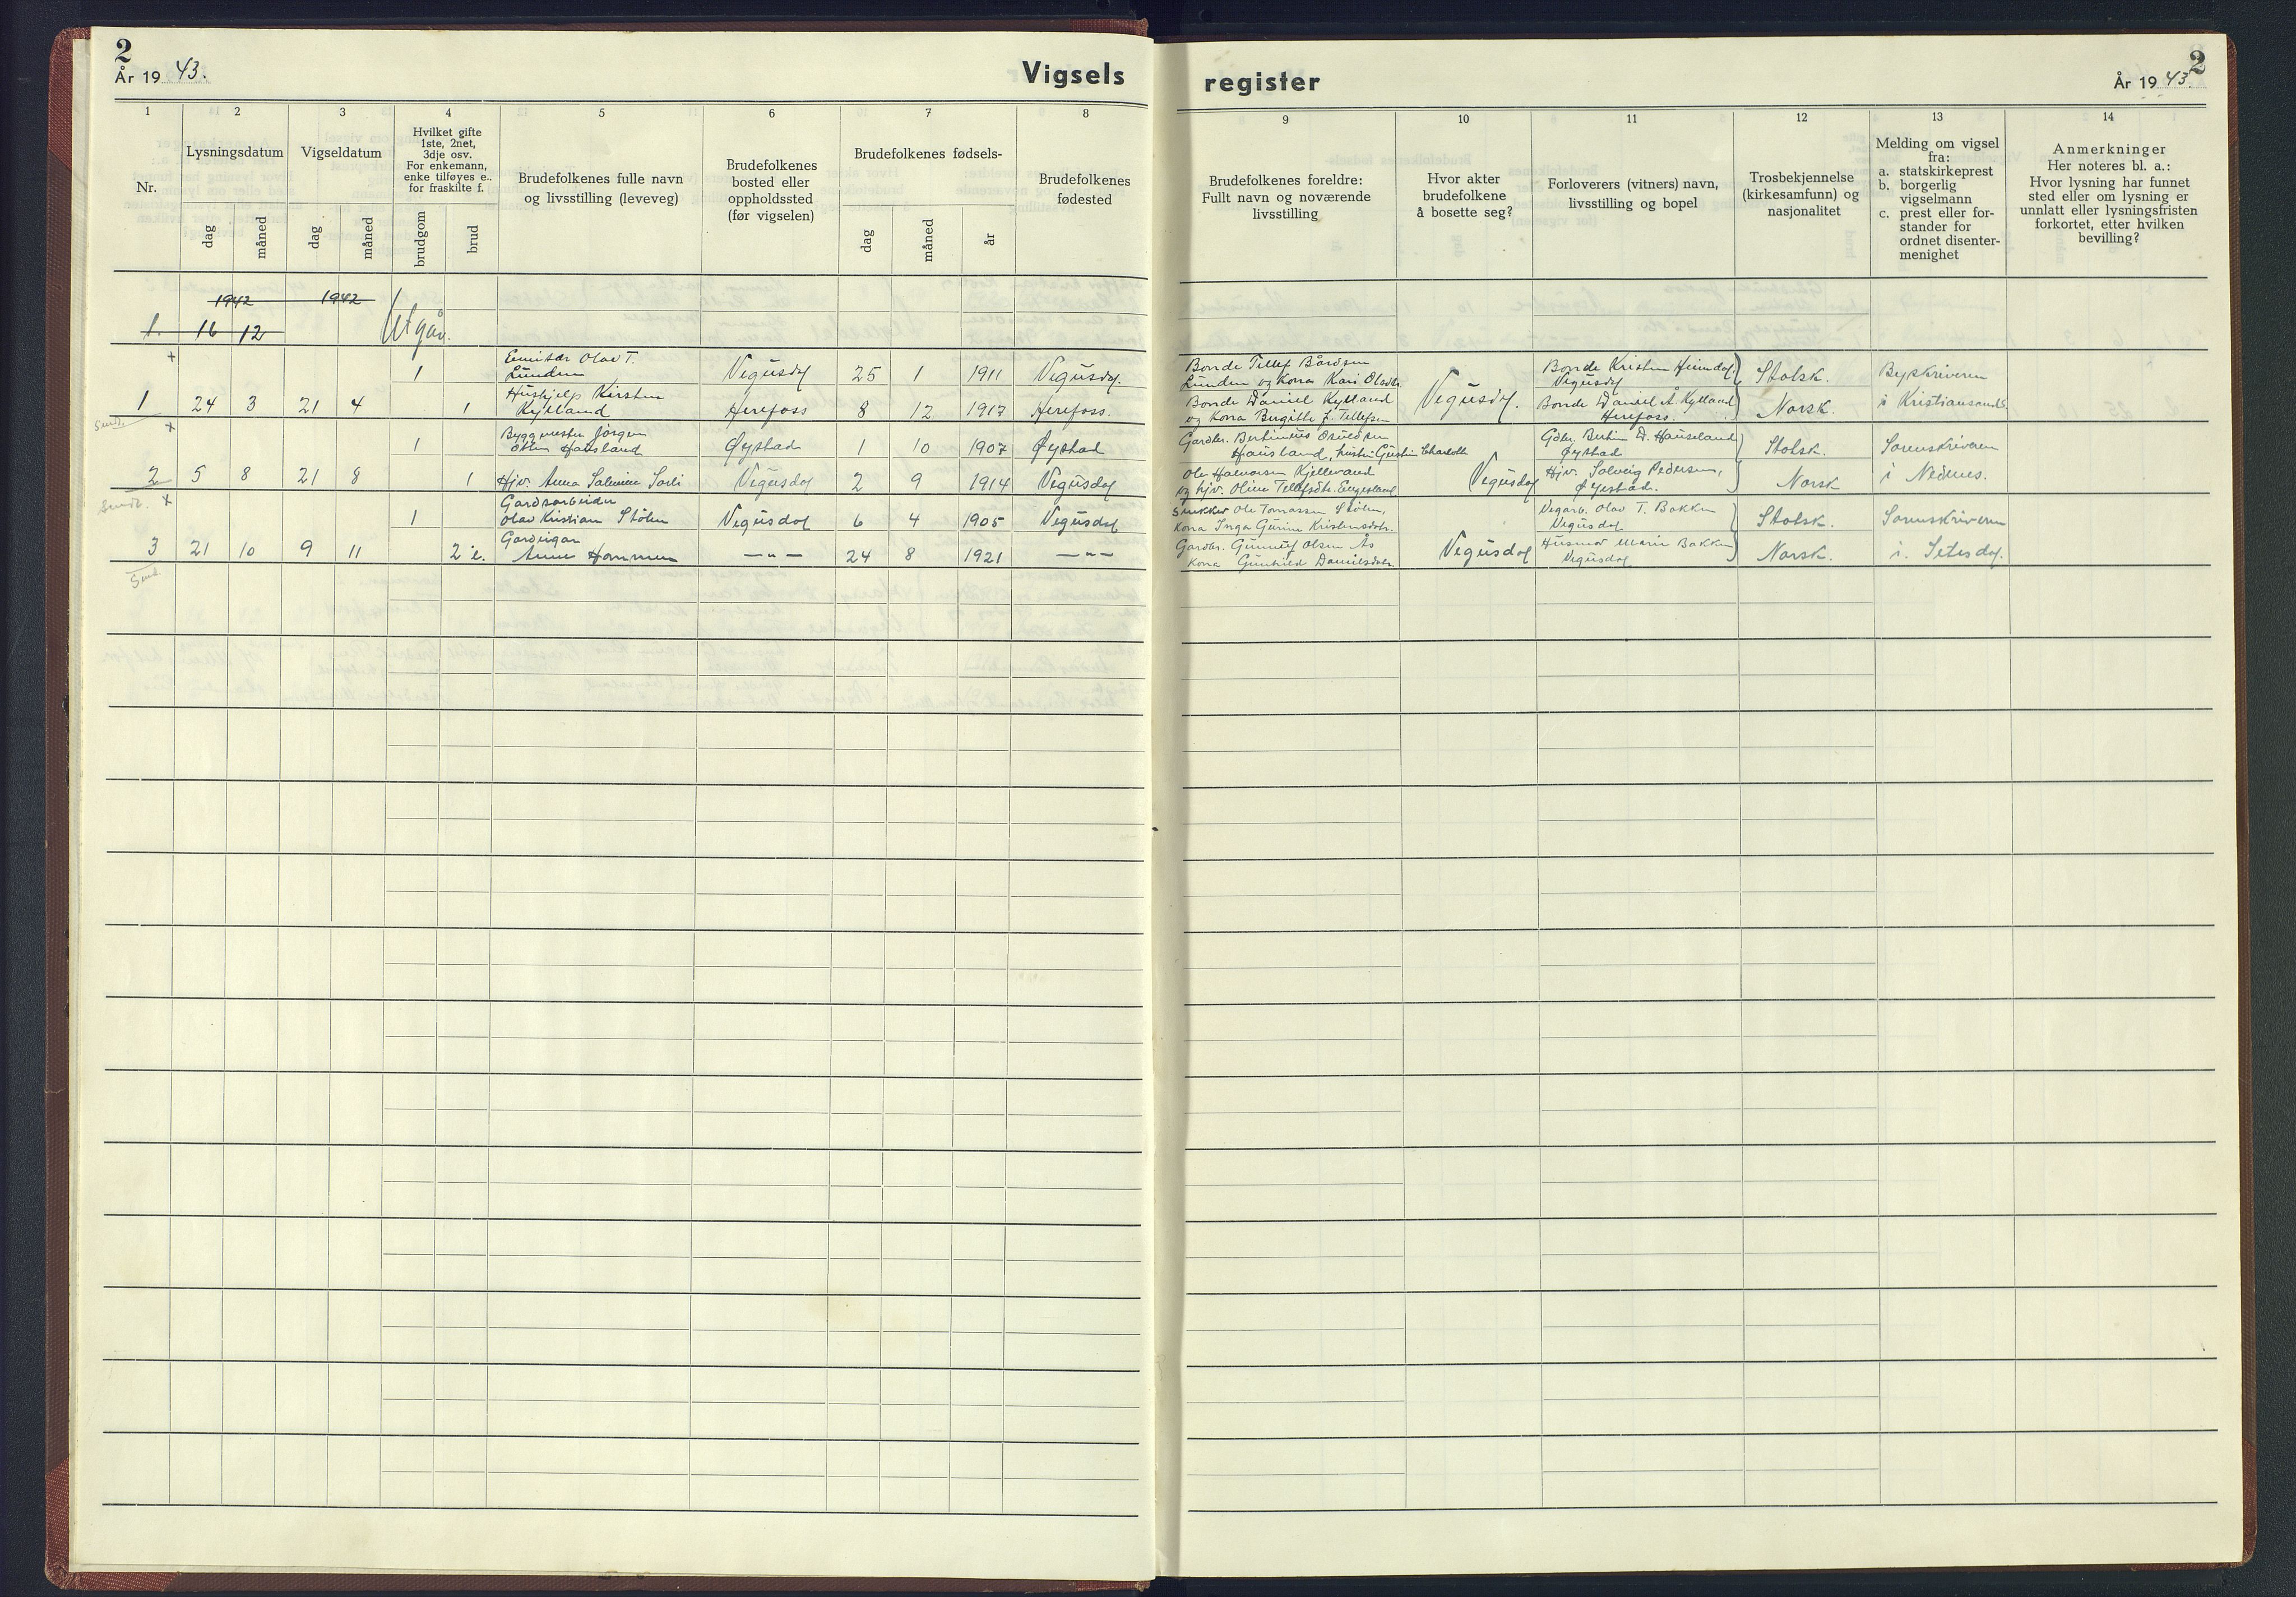 2
År 19 43.
Vigsels
register
2
År 19 43.
1
2
3
4
5
6
7
8
9
10
11
12
13
14
Nr.
Lysningsdatum
dag
måned
Vigseldatum
dag
måned
Hvilket gifte
1ste, 2net,
3dje osv.
For enkemann,
enke tilføyes e.,
for fraskilte f.
brudgom
brud
Brudefolkenes fulle navn
og livsstilling (leveveg)
Brudefolkenes
bosted eller
oppholdssted
(før vigselen)
Brudefolkenes fødsels-
dag
måned
år
Brudefolkenes
fødested
Brudefolkenes foreldre:
Fullt navn og noværende
livsstilling
Hvor akter
brudefolkene
å bosette seg?
Forloverers (vitners) navn,
livsstilling og bopel
Trosbekjennelse
(kirkesamfunn) og
nasjonalitet
Melding om vigsel
fra:
a. statskirkeprest
b. borgerlig
vigselmann
c. prest eller for-
stander for
ordnet disenter-
menighet
Anmerkninger
Her noteres bl. a.:
Hvor lysning har funnet
sted eller om lysning er
unnlatt eller lysningsfristen
forkortet, etter hvilken
bevilling?
1942 1942
1. 16 12 Utgår.
+
1 Olav T.
Lunden Vegusdal 25 1 1911 Vegusdal.
Bonde Tellef Bårdsen
Lunden og kona Kari Olsdtr.
Bonde Kristen Heimdal
Vegusdal
Statsk.
Byskriveren
1 24 3 21 4 1 Hushjelp Kirsten
Kylland Herefoss 8 12 1917 Herefoss.
Bonde Daniel Kylland
og kona Birgitte J. Tellefsen
Vegusdal.
Bonde Daniel A. Kylland
Herefoss.
Norsk.
i Kristiansand S.
Sendt.
+
1 Byggmester Jörgen
Hausland Øystad 1 10 1907 Øystad
Gardbr. Bertinius
Hausland, Charlotte
Gdbr. D. Hausland
Øystad
Statsk.
Sorenskriveren
2 5 8 21 8 1 Hjv. Anna Salmine Sarli Vegusdal 2 9 1914 Vegusdal
Ole Halvorsen Kjellevand
og hjv. Oline Tellefsdtr. Engesland
Vegusdal
Hjv. Solveig Pedersen,
Øyestad.
Norsk
i Nedenes.
Sendt. +
1 Gardsarbeider
Olav Kristian Stölen Vegusdal 6 4 1905 Vegusdal
Snekker Ole Tomassen Stölen,
Kona Inga Gurine Kristensdtr.
Vegarb. Olav T. Bakken
Vegusdal
Statsk.
Sorenskriveren
3 21 10 9 11 2 e. Gardeigar
Anne Hommen —"— 24 8 1921 —"—
Gardbr. Gunnulf Olsen Ås
Kona Gunhild Danielsdtr.
Vegusdal
Husmor Marie Bakken
Vegusdal
Norsk.
i. Setesdal.
Send.